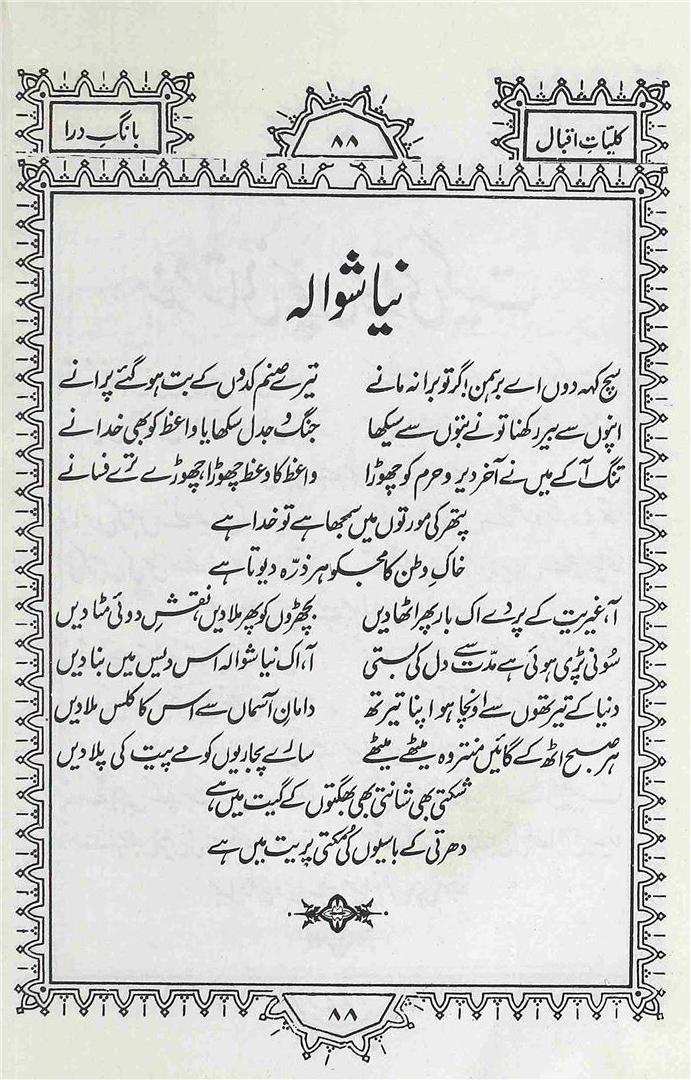 کلیاتِ اقبال ۸۸ بانگِ درا
نیا شوالہ
سچ کہہ دوں اے برہمن! گر تو برا نہ مانے تیرے صنم کدوں کے بت ہو گئے پرانے
اپنوں سے بیر رکھنا تو نے بتوں سے سیکھا جنگ و جدل سکھایا واعظ کو بھی خدا نے
تنگ آ کے میں نے آخر دیر و حرم کو چھوڑا واعظ کا وعظ چھوڑا، چھوڑے ترے فسانے
پتھر کی مورتوں میں سمجھا ہے تو خدا ہے
خاکِ وطن کا مجھ کو ہر ذرّہ دیوتا ہے
آ، غیریت کے پردے اک بار پھر اٹھا دیں بچھڑوں کو پھر ملا دیں، نقشِ دوئی مٹا دیں
سُونی پڑی ہوئی ہے مدّت سے دل کی بستی آ، اک نیا شوالہ اس دیس میں بنا دیں
دنیا کے تیرتھوں سے اونچا ہو اپنا تیرتھ دامانِ آسماں سے اس کا کلس ملا دیں
ہر صبح اٹھ کے گائیں منتر وہ میٹھے میٹھے سارے پجاریوں کو مے پیت کی پلا دیں
شکتی بھی شانتی بھی بھگتوں کے گیت میں ہے
دھرتی کے باسیوں کی مکتی پریت میں ہے
۸۸